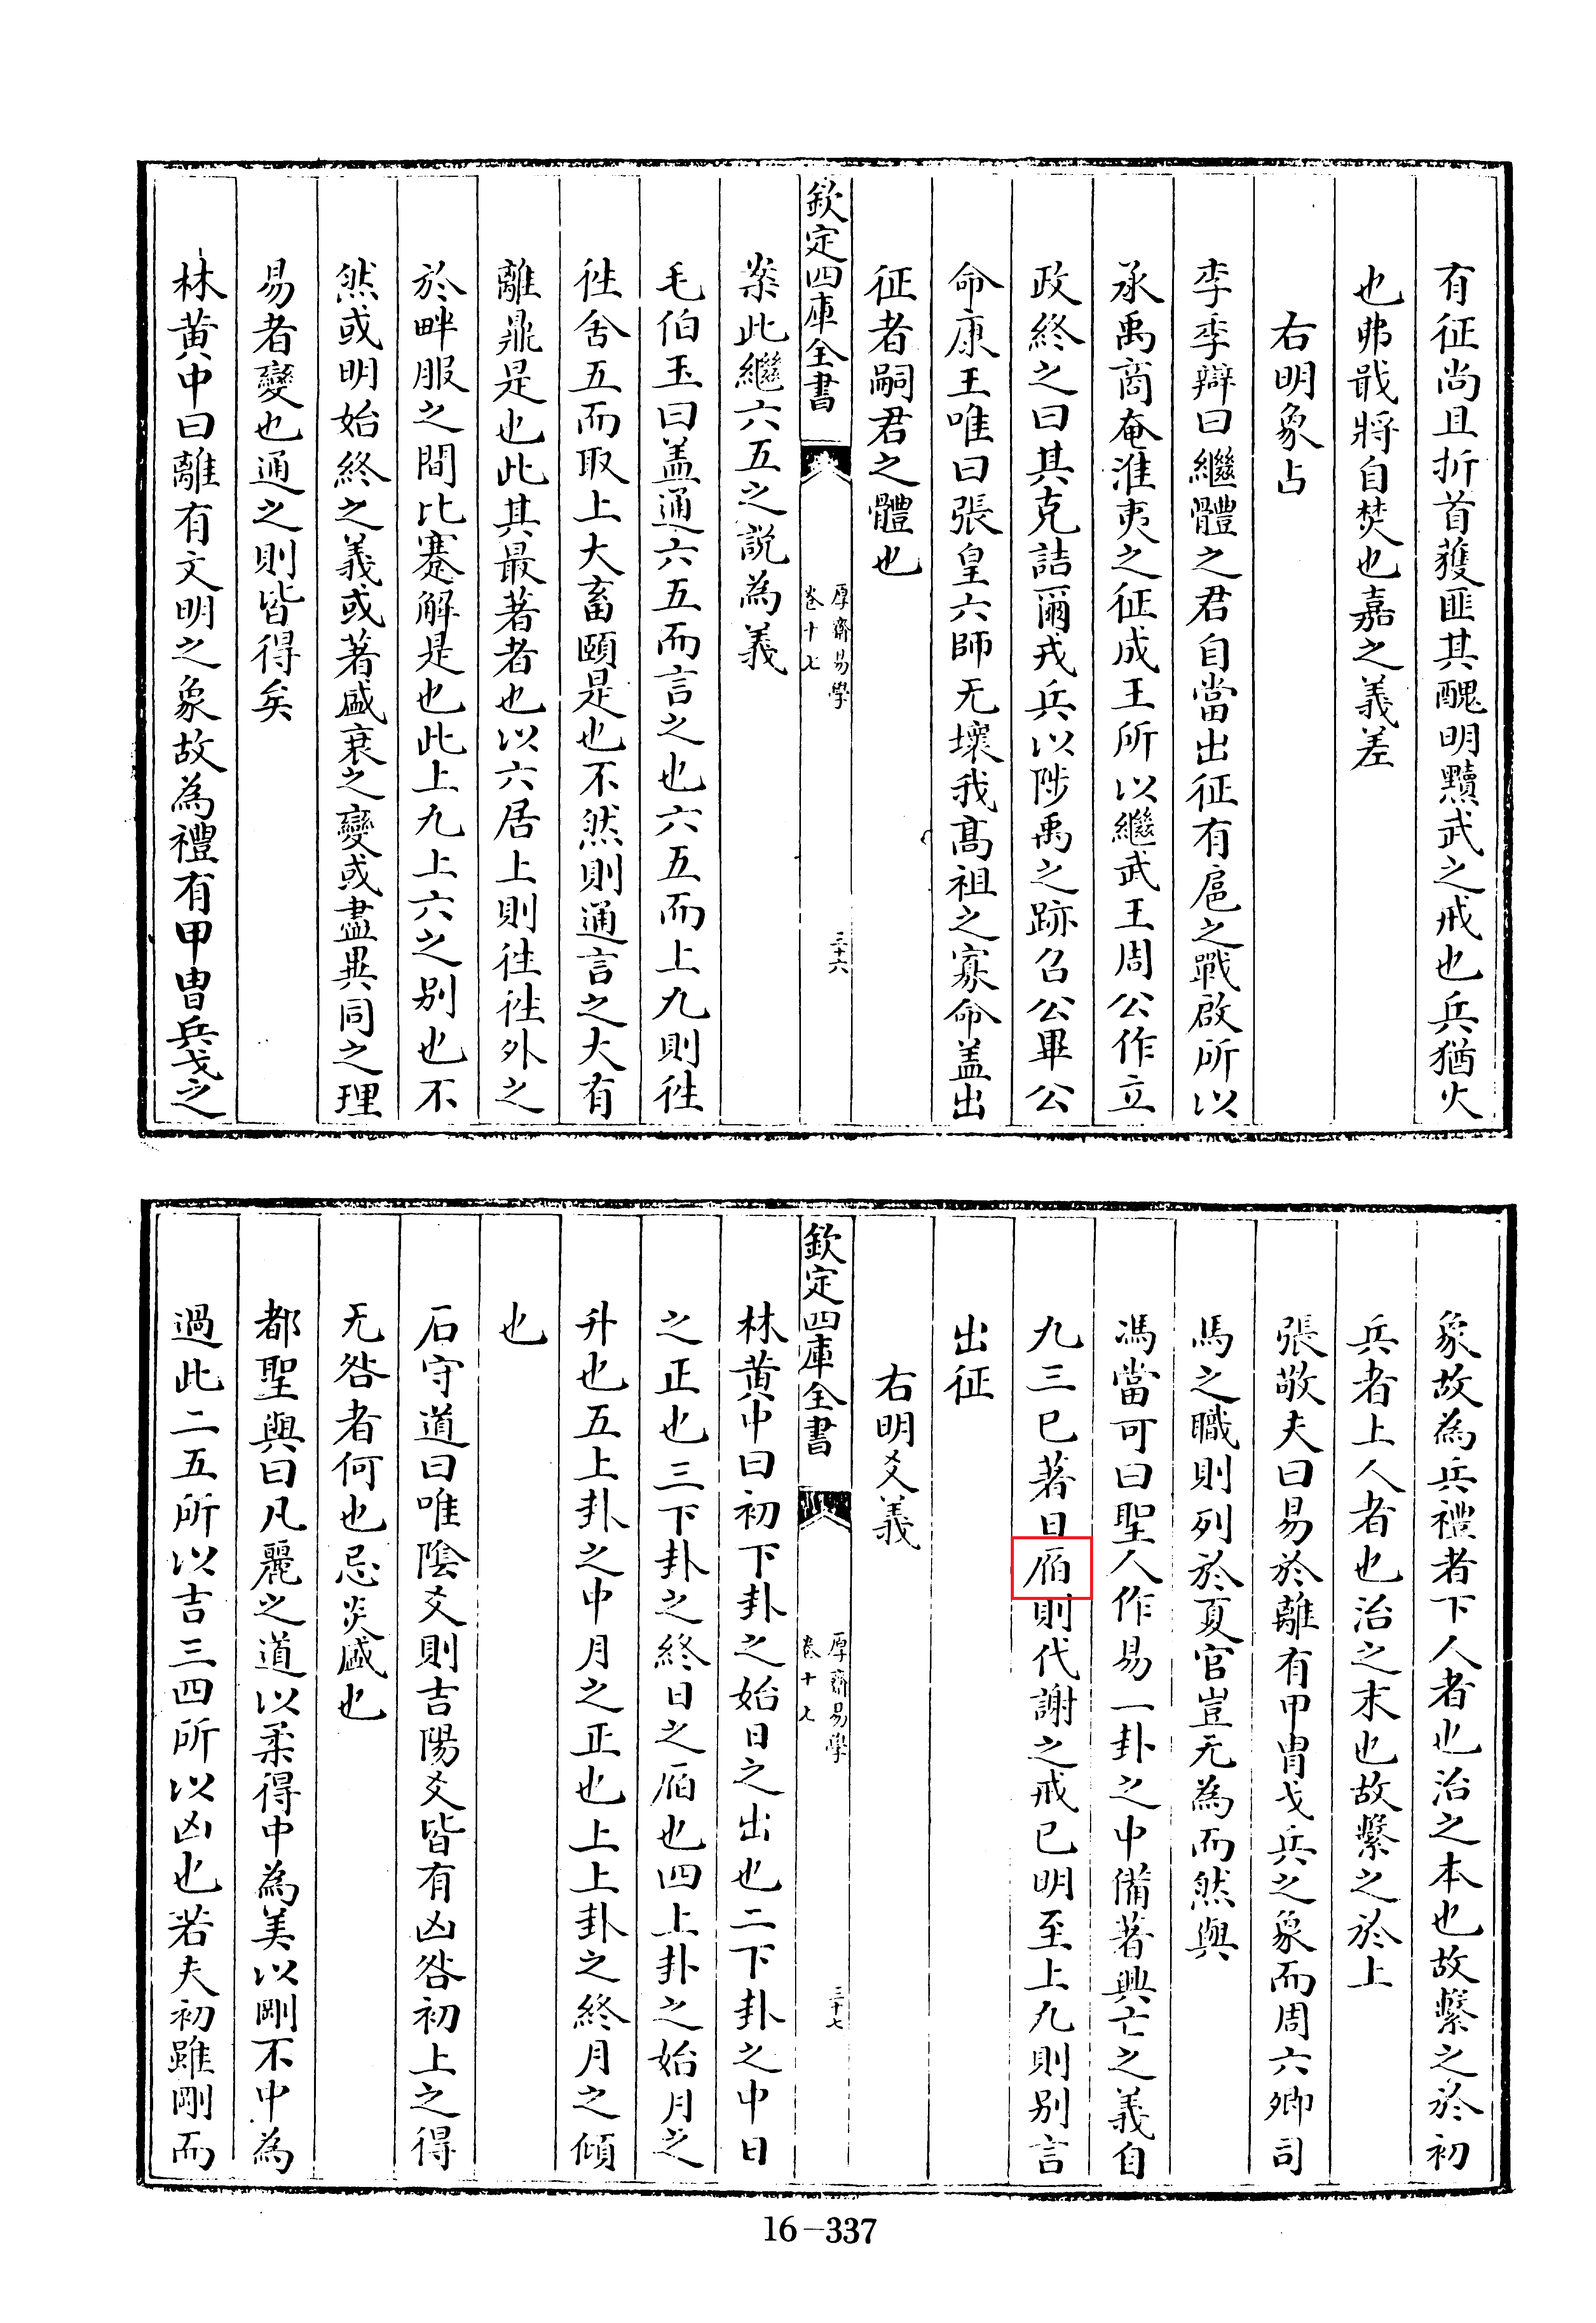 有征尚且折首獲匪其醜明黷武之戒也兵猶火
也弗戢將自焚也嘉之義差
右明象占
李季辯曰繼體之君自當出征有扈之戰啟所以
承禹商奄淮夷之征成王所以繼武王周公作立
政終之曰其克詰爾戎兵以陟禹之跡召公畢公
命康王唯曰張皇六師无壞我髙祖之寡命盖出
征者嗣君之體也
欽定四庫全書
厚齋易學
卷十七
三十六
案此繼六五之說為義
毛伯玉曰盖通六五而言之也六五而上九則徃
徃舍五而取上大畜頤是也不然則通言之大有
離鼎是也此其最著者也以六居上則徃徃外之
於畔服之間比蹇解是也此上九上六之别也不
然或明始終之義或著盛衰之變或盡異同之理
易者變也通之則皆得矣
林黄中曰離有文明之象故為禮有甲胄兵戈之
象故為兵禮者下人者也治之本也故繫之於初
兵者上人者也治之末也故繫之於上
張敬夫曰易於離有甲胄戈兵之象而周六卿司
馬之職則列於夏官豈无為而然與
馮當可曰聖人作易一卦之中備著興亡之義自
九三已著日則代謝之戒已明至上九則别言
出征
右明爻義
欽定四庫全書
厚齋易學
卷十七
三十七
林黄中曰初下卦之始日之出也二下卦之中日
之正也三下卦之終日之也四上卦之始月之
升也五上卦之中月之正也上上卦之終月之傾
也
石守道曰唯陰爻則吉陽爻皆有凶咎初上之得
无咎者何也忌炎盛也
都聖與曰凡麗之道以柔得中為美以剛不中為
過此二五所以吉三四所以凶也若夫初雖剛而
16-337